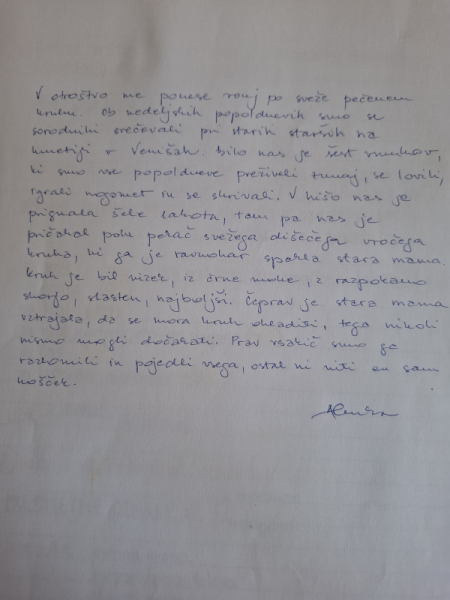 V otroštvo me ponese vonj po sveže pečenem
kruhu. Ob nedeljskih popoldnevih smo se
sorodniki srečevali pri starih starših na
kmetiji v Venišah. Bilo nas je šest vnukov,
ki smo vse popoldneve preživeli zunaj, se lovili,
igrali nogomet in se skrivali. V hišo nas je
prignala šele lakota, tam pa nas je
pričakal poln pekač svežega dišečega vročega
kruha, ki ga je ravnokar spekla stara mama.
Kruh je bil nizek, iz črne moke, z razpokano
skorjo, slasten, najboljši. Čeprav je stara mama
vztrajala, da se mora kruh ohladiti, tega nikoli
nismo mogli dočakati. Prav vsakič smo ga
razlomili in pojedli vsega, ostal ni niti en sam
košček.